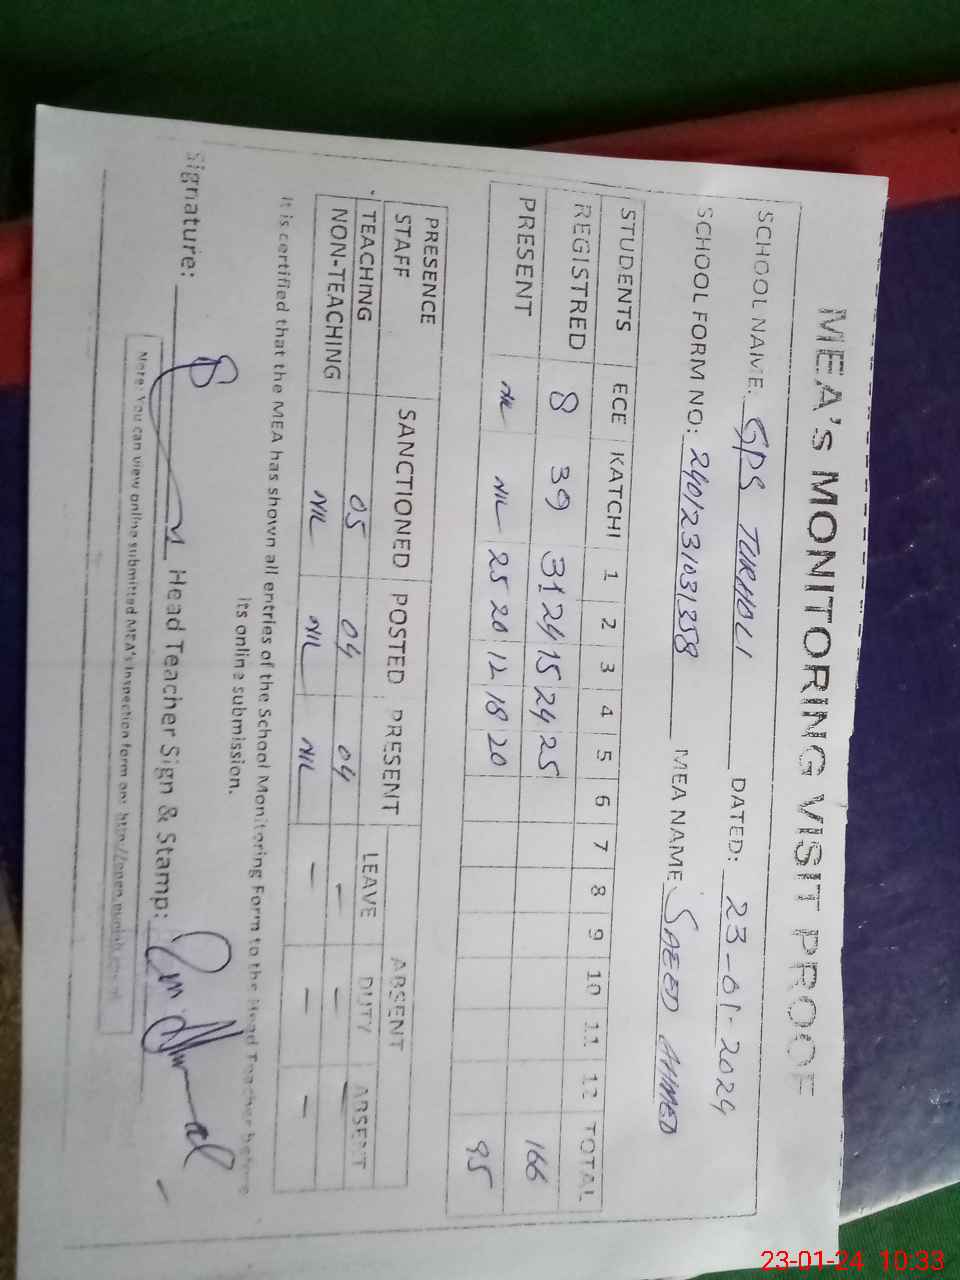 MEA's MONITORING VISIT PROOF
SCHOOL NAME: GPS TURHOLI DATED: 23-01-2024
SCHOOL FORM NO: 2401231031358 MEA NAME SAEED AHMED
STUDENTS ECE KATCHI 1 2 3 4 5 6 7 8 9 10 11 12 TOTAL
REGISTRED 8 39 31 24 15 24 25 166
PRESENT NIL NIL 25 20 12 18 20 95
PRESENCE STAFF SANCTIONED POSTED PRESENT ABSENT
LEAVE DUTY ABSENT
TEACHING 05 04 04 – – –
NON-TEACHING NIL NIL NIL – – –
It is certified that the MEA has shown all entries of the School Monitoring Form to the Head Teacher before
its online submission.
Signature: Head Teacher Sign & Stamp:
Note: You can view online submitted MEA's inspection form on: http://open.punjab.gov.pk
23-01-24 10:33